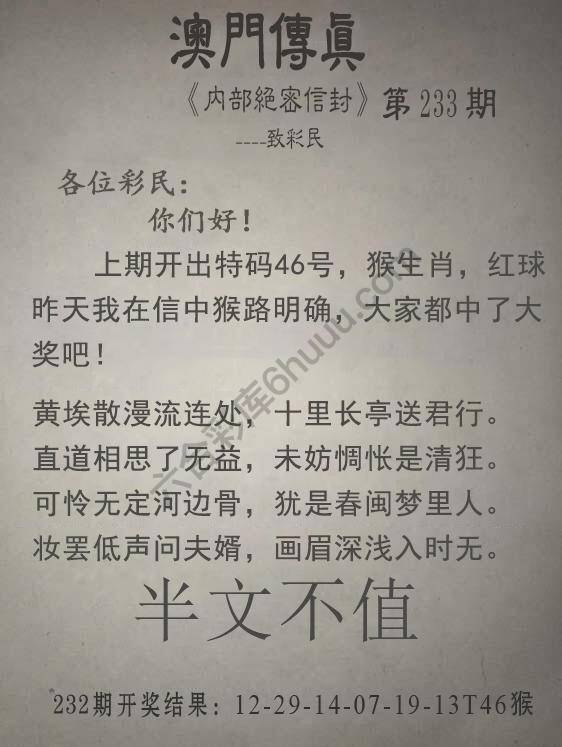 澳門傳眞
《内部絕密信封》第233期
----致彩民
各位彩民：
你们好！
上期开出特码46号，猴生肖，红球
昨天我在信中猴路明确，大家都中了大
奖吧！
黄埃散漫流连处，十里长亭送君行。
直道相思了无益，未妨惆怅是清狂。
可怜无定河边骨，犹是春闺梦里人。
妆罢低声问夫婿，画眉深浅入时无。
半文不值
232期开奖结果：12-29-14-07-19-13T46猴
六合彩库6huuu.com